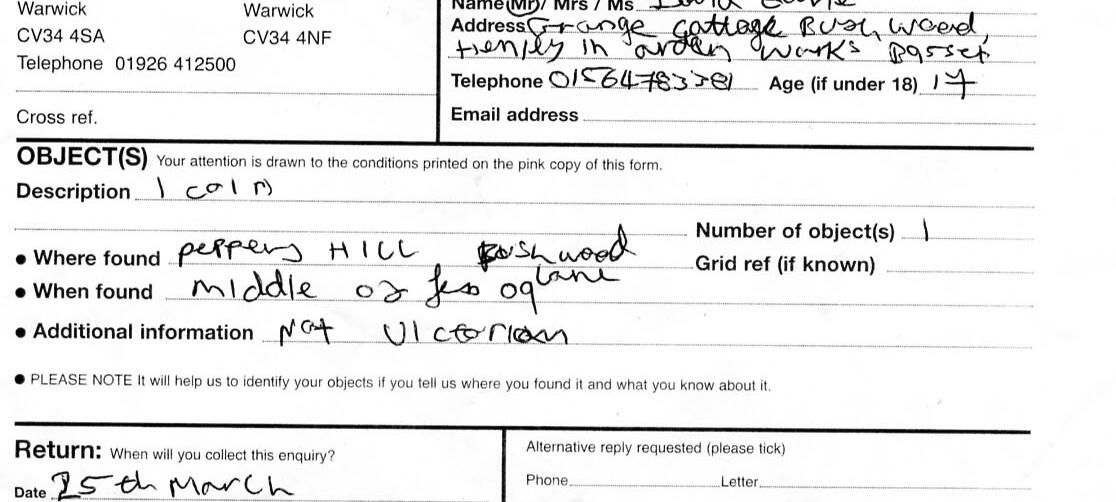 Warwick Warwick
Name (Mr) / Mrs / Ms David
CV34 4SA CV34 4NF
Address Grange Cottage Bush Wood,
Henley in arden Warks B95
Telephone 01926 412500
Telephone 01564783381 Age (if under 18) 17
Cross ref.
Email address
OBJECT(S) Your attention is drawn to the conditions printed on the pink copy of this form.
Description 1 coin
Number of object(s) 1
• Where found peppers HILL Bushwood
lane
Grid ref (if known)
• When found middle of feb 09
• Additional information Not Victorian
• PLEASE NOTE It will help us to identify your objects if you tell us where you found it and what you know about it.
Return: When will you collect this enquiry?
Alternative reply requested (please tick)
Date 25th March
Phone Letter